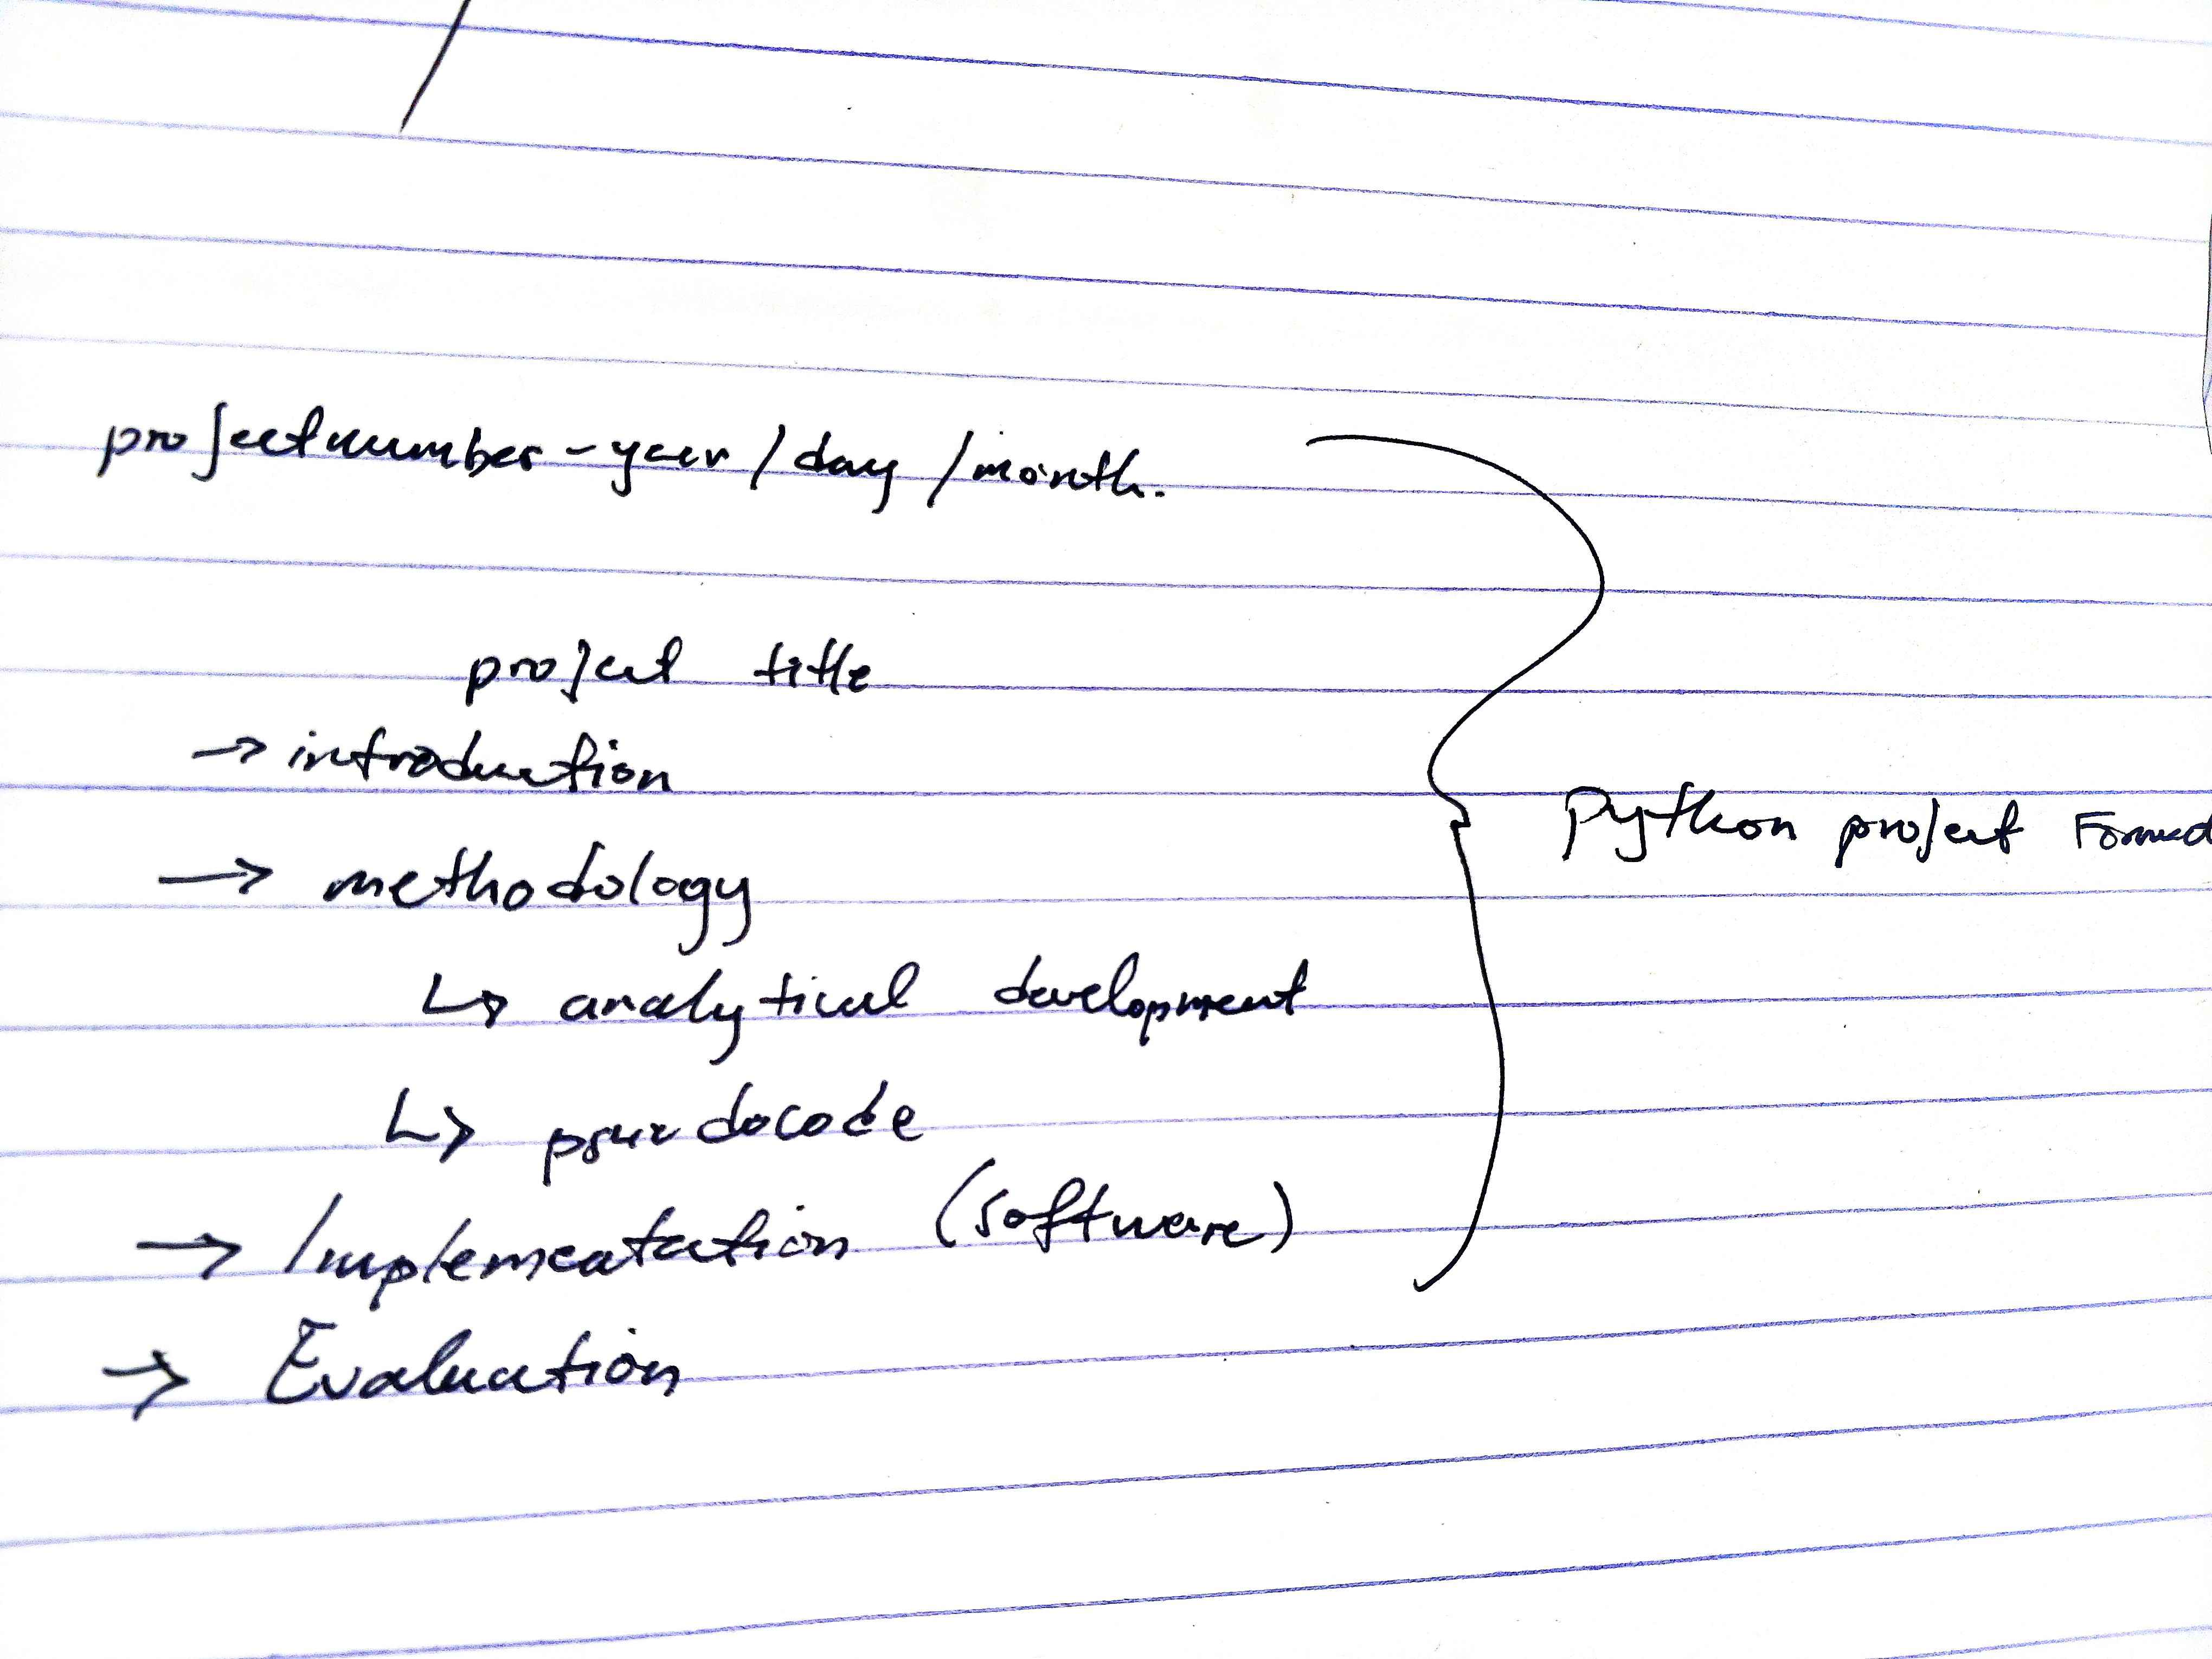 projectnumber - year / day / month.
project title
→ introduction
→ methodology
↳ analytical development
↳ pseudocode
→ Implementation (software)
→ Evaluation
Python project